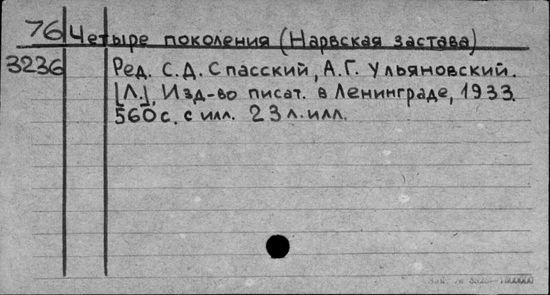 76 Четыре поколения (Нарвская застава)
3236 Ред. С.Д. Спасский, А.Г. Ульяновский.
[Л.], Изд-во писат. в Ленинграде, 1933.
560 с. с илл. 23 л. илл.